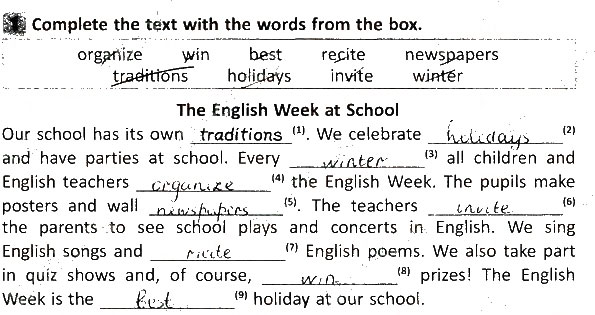 1 Complete the text with the words from the box.
organize win best recite newspapers
traditions holidays invite winter
The English Week at School
Our school has its own traditions (1). We celebrate holidays (2)
and have parties at school. Every winter (3) all children and
English teachers organize (4) the English Week. The pupils make
posters and wall newspapers (5). The teachers invite (6)
the parents to see school plays and concerts in English. We sing
English songs and recite (7) English poems. We also take part
in quiz shows and, of course, win (8) prizes! The English
Week is the best (9) holiday at our school.